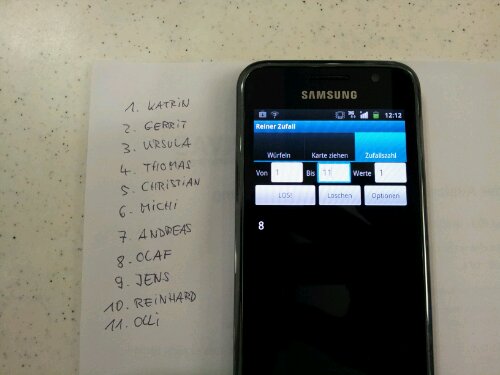 1. KATRIN
2. GERRIT
3. URSULA
4. THOMAS
5. CHRISTIAN
6. MICHI
7. ANDREAS
8. OLAF
9. JENS
10. REINHARD
11. OLLI
SAMSUNG
12:12
Reiner Zufall
Würfeln Karte ziehen Zufallszahl
Von 1 Bis 11 Werte 1
LOS! Löschen Optionen
8